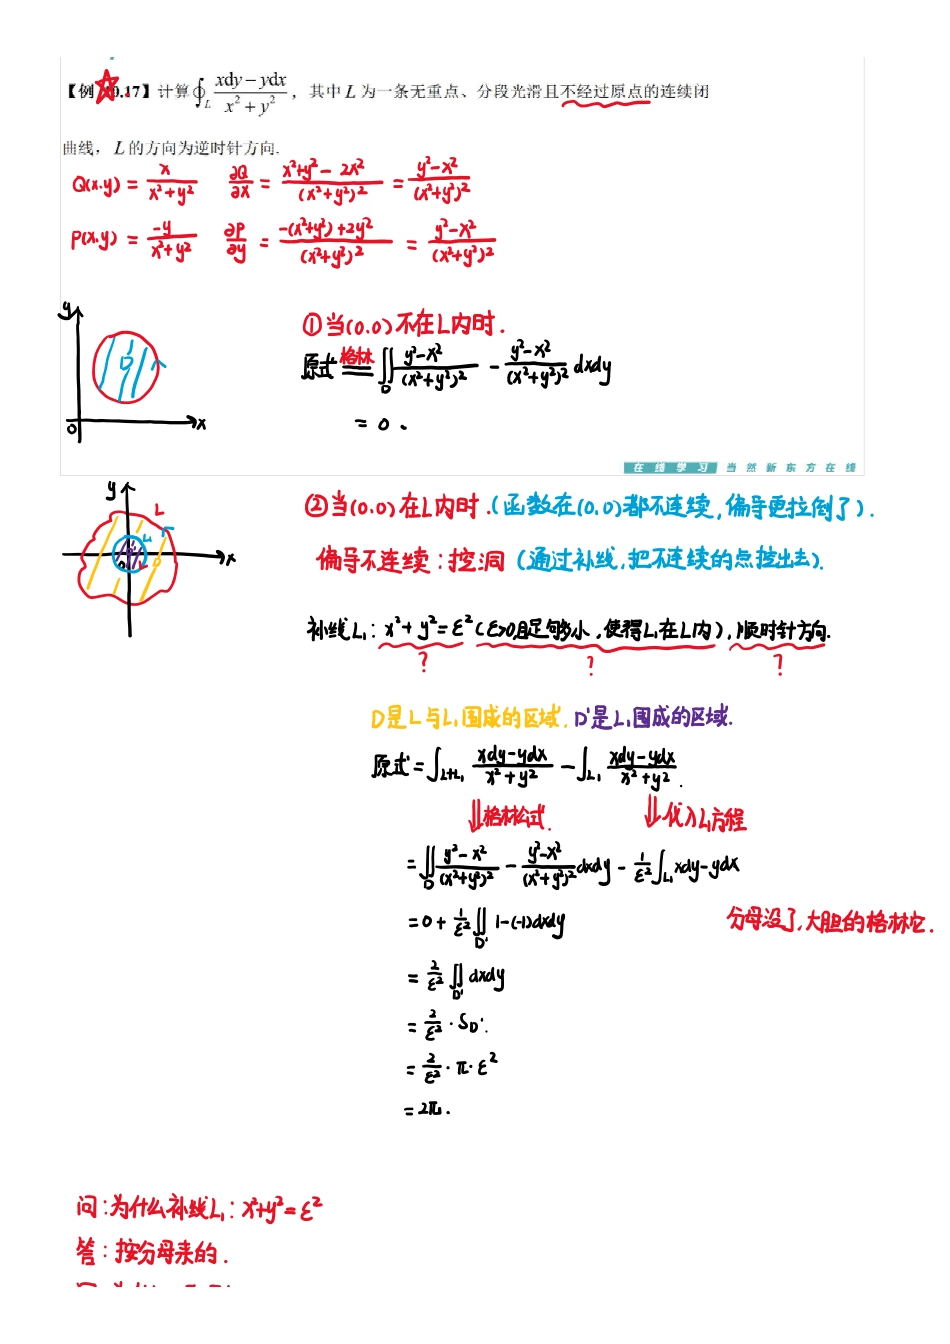 【例10.17】计算∮_L (xdy − ydx)/(x² + y²)，其中 L 为一条无重点、分段光滑且不经过原点的连续闭
曲线，L的方向为逆时针方向.
Q(x.y) = x/(x²+y²) ∂Q/∂x = (x²+y² − 2x²)/(x²+y²)² = (y²−x²)/(x²+y²)²
P(x.y) = −y/(x²+y²) ∂P/∂y = (−(x²+y²)+2y²)/(x²+y²)² = (y²−x²)/(x²+y²)²
y
D
0
x
①当(0.0)不在L内时.
原式 格林 = ∬_D (y²−x²)/(x²+y²)² − (y²−x²)/(x²+y²)² dxdy
= 0 .
在线学习 当然新东方在线
y
L
L₁
D'
D
0
x
②当(0.0)在L内时.(函数在(0.0)都不连续,偏导更拉倒了).
偏导不连续:挖洞 (通过补线,把不连续的点挖出去).
补线L₁: x²+y²=ε²(ε>0且足够小,使得L₁在L内),顺时针方向.
? ? ?
D是L与L₁围成的区域. D'是L₁围成的区域.
原式 = ∫_{L+L₁} (xdy−ydx)/(x²+y²) − ∫_{L₁} (xdy−ydx)/(x²+y²).
⇓格林公式. ⇓代入L₁方程
= ∬_D (y²−x²)/(x²+y²)² − (y²−x²)/(x²+y²)² dxdy − 1/ε² ∫_{L₁} xdy−ydx
= 0 + 1/ε² ∬_{D'} 1−(−1)dxdy 分母没了,大胆的格林它.
= 2/ε² ∬_{D'} dxdy
= 2/ε² · S_{D'}.
= 2/ε² · π · ε²
= 2π.
问:为什么补线L₁: x²+y²=ε²
答:按分母来的.